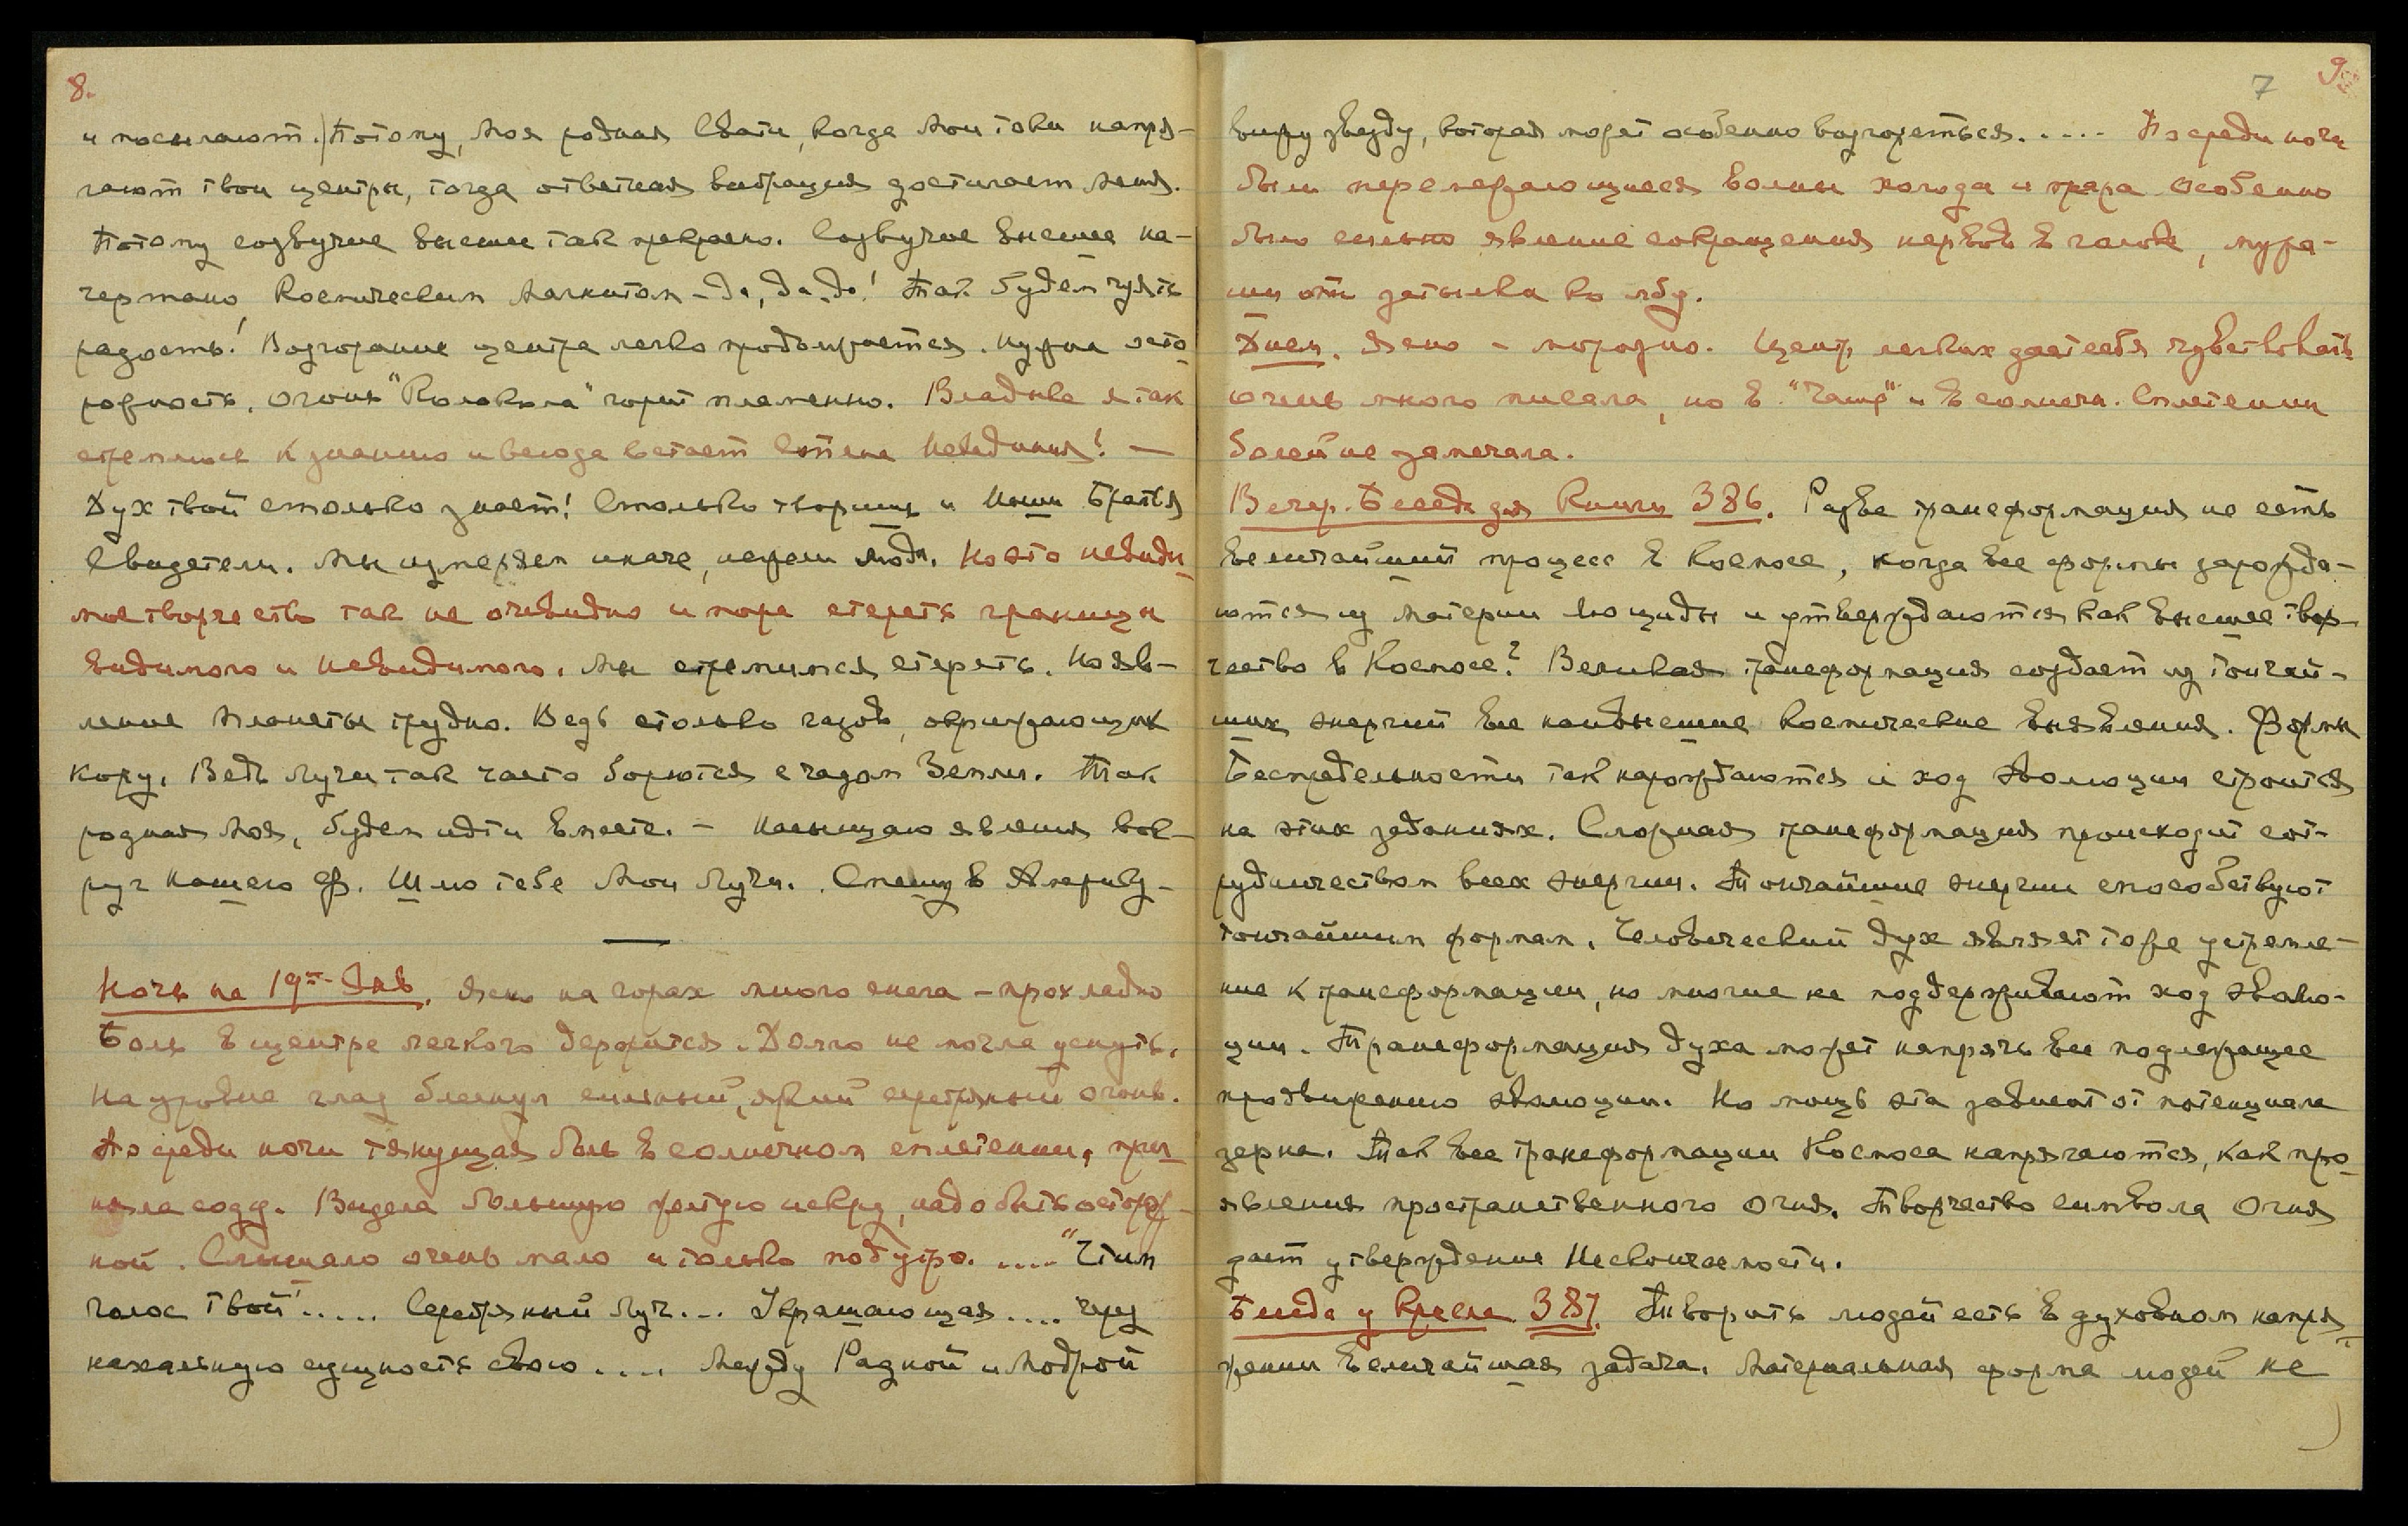 8.
и посылают. Потому, Моя родная Свати, когда Мои токи напря-
гают твои центры, тогда ответная вибрация достигает Меня.
Потому созвучие высшее так прекрасно. Созвучие высшее на-
чертано Космическим Магнитом – да, да, да! Так будем чуять
радость! Возгорание центра легких продвигается. Нужна осто-
рожность. Огонь "Колокола" горит пламенно. Владыка я так
стремлюсь к знанию и всюду встает стена Неведения! —
Дух твой столько знает! Столько творишь и Наши Братья
Свидетели. Мы измеряем иначе, нежели люди. Но это невиди-
мое творчество так не очевидно и пора стереть границы
видимого и Невидимого. Мы стремимся стереть. Но яв-
ление планеты трудно. Ведь столько газов, окружающих
кору. Ведь Лучи так часто борются с чадом Земли. Так
родная Моя, будем идти вместе. – Насыщаю явления вок-
руг нашего Ф. Шлю тебе Мои Лучи. Спешу в Америку –
Ночь на 19ое Янв. Ясно на горах много снега – прохладно
Боль в центре легкого держится. Долго не могла уснуть.
На уровне глаз блеснул сильный, яркий серебряный огонь.
Посреди ночи тянущая боль в солнечном сплетении, при-
няла соду. Видела большую желтую искру, надо быть осторож-
ной. Слышала очень мало и только под утро. .... "Чтим
голос твой" ..... Серебряный Луч... Украшающая .... чрез
начальную сущность свою .... Между Радной и Модрой
7
9.
вижу звезду, которая может особенно возгореться. .... Посреди ночи
были перемежающиеся волны холода и жара особенно
было сильно явление сокращения нервов в голове, мура-
ши от затылка ко лбу.
Днем. Ясно – морозно. Центр легких дает себя чувствовать
очень много писала, но в "Чаше" и в солнечн. Сплетении
болей не замечала.
Вечер. Беседа для Книги 386. Разве трансформация не есть
величайший процесс в Космосе, когда все формы зарожда-
ются из Материи Люциды и утверждаются как высшее твор-
чество в Космосе? Великая трансформация создает из тончай-
ших энергий все наивысшие космические выявления. Формы
Беспредельности так нарождаются и ход эволюции строится
на этих заданиях. Сложная трансформация происходит сот-
рудничеством всех энергий. Тончайшие энергии способствуют
тончайшим формам. Человеческий дух являет тоже устремле-
ние к трансформации, но многие не поддерживают ход эволю-
ции. Трансформация духа может напрячь все подлежащее
продвижению эволюции. Но мощь эта зависит от потенциала
зерна. Так все трансформации Космоса напрягаются, как про-
явления пространственного огня. Творчество символа Огня
дает утверждение Нескончаемости.
Беседа у Кресла 387. Творить людей есть в духовном напря-
жении величайшая задача. Материальная форма людей не